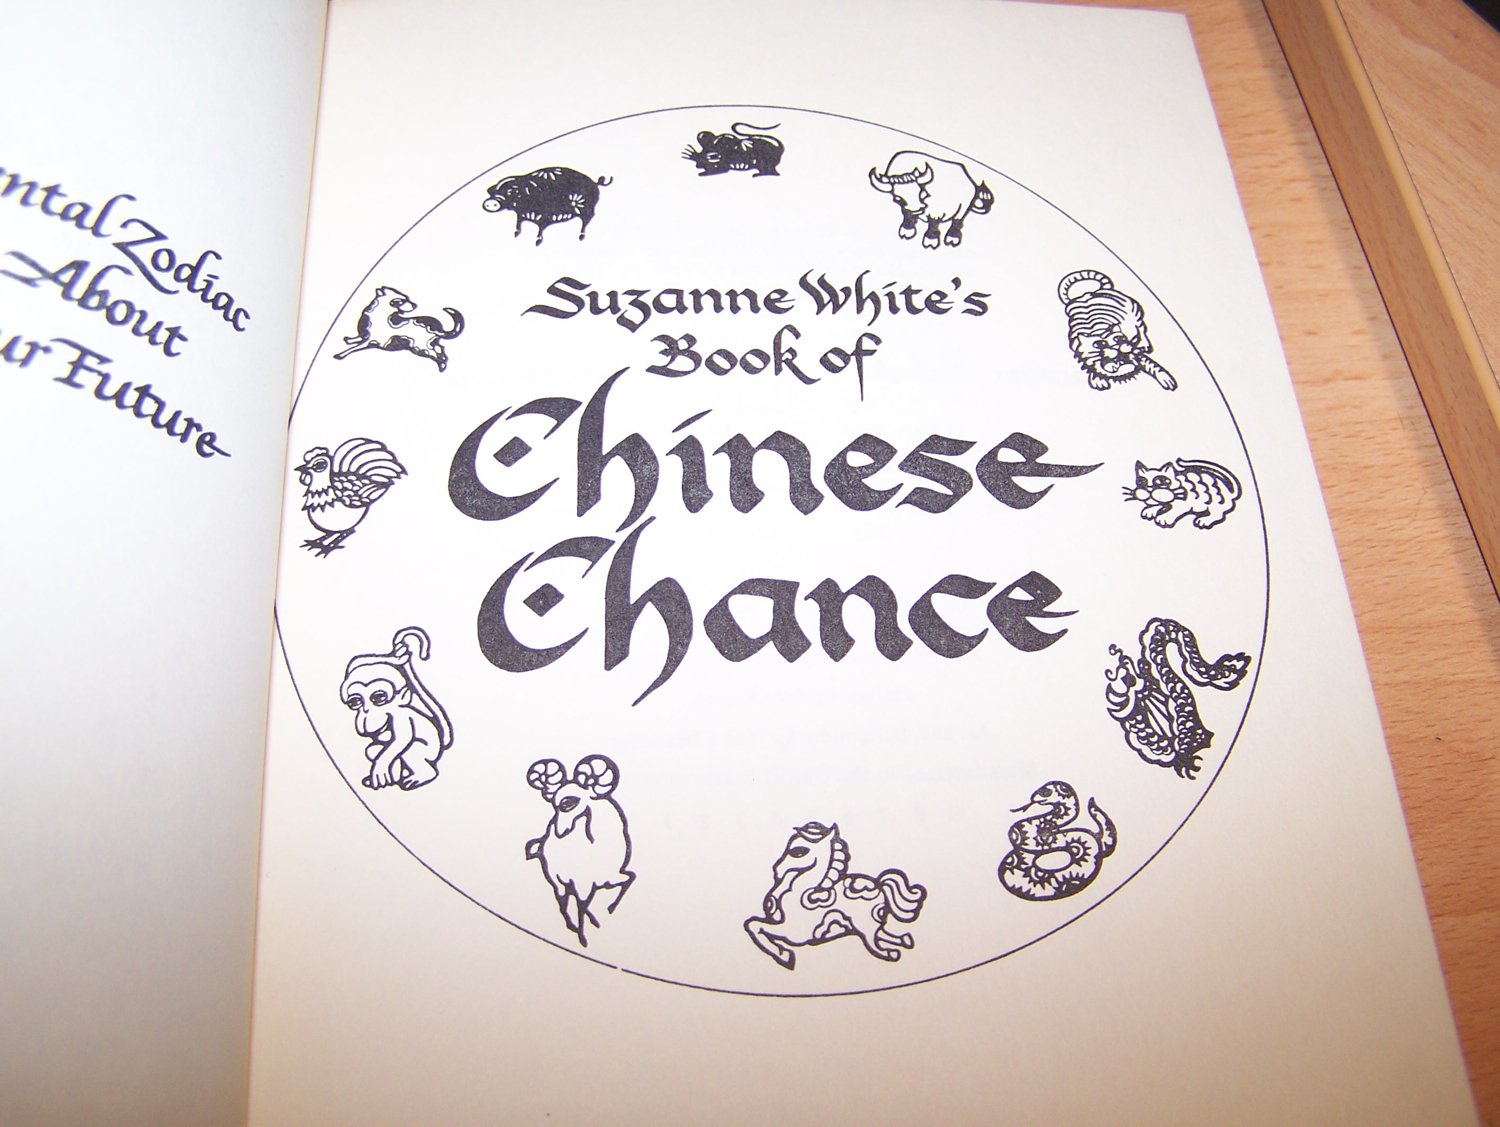 Zodiac
About
Future
Suzanne White's
Book of
Chinese
Chance